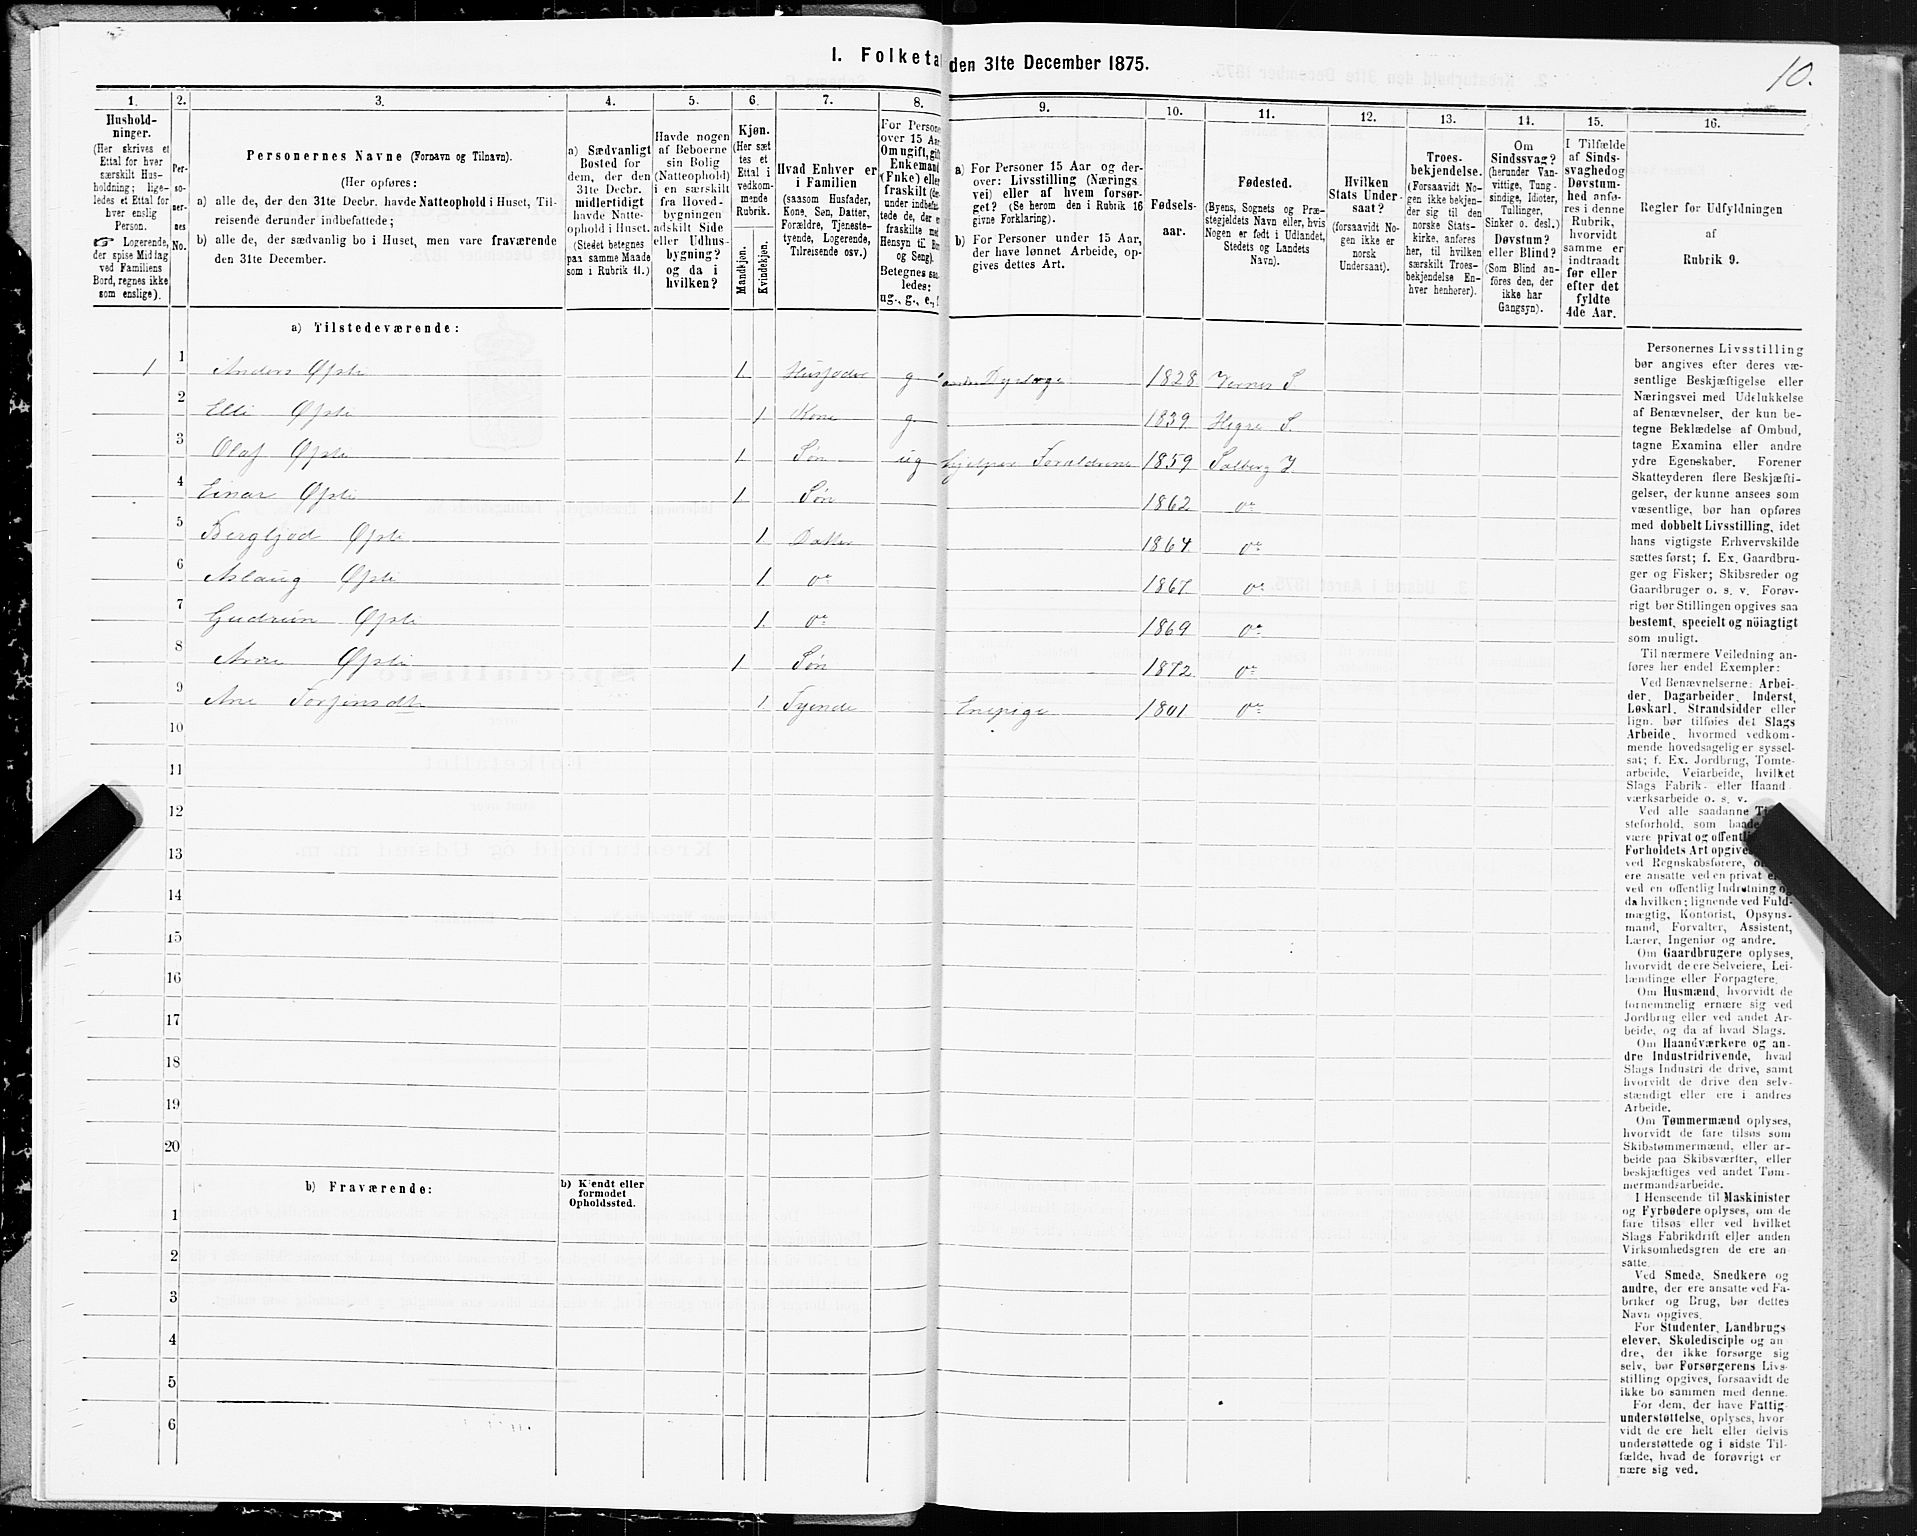 I. Folketal den 31te December 1875.
10.
1. 2. 3. 4. 5. 6. 7. 8. 9. 10. 11. 12. 13. 14. 15. 16.
Hushold-
ninger.
(Her skrives et
Ettal for hver
særskilt Hus-
holdning; lige-
ledes et Ettal for
hver enslig
Person.
☞ Logerende,
der spise Middag
ved Familiens
Bord, regnes ikke
som enslige).
Per-
so-
ner-
nes
No.
Personernes Navne (Fornavn og Tilnavn).
(Her opføres:
a) alle de, der den 31te Decbr. havde Natteophold i Huset, Til-
reisende derunder indbefattede;
b) alle de, der sædvanlig bo i Huset, men vare fraværende
den 31te December.
a) Sædvanligt
Bosted for
dem, der den
31te Decbr.
midlertidigt
havde Natte-
ophold i Huset.
(Stedet betegnes
paa samme Maade
som i Rubrik 11.)
Havde nogen
af Beboerne
sin Bolig
(Natteophold)
i en særskilt
fra Hoved-
bygningen
adskilt Side
eller Udhus-
bygning?
og da i
hvilken?
Kjøn.
(Her sæt
tes et
Ettal i
vedkom-
mende
Rubrik.
Mandkjøn.
Kvindekjøn.
Hvad Enhver er
i Familien
(saasom Husfader,
Kone, Søn, Datter,
Forældre, Tjeneste-
tyende, Logerende,
Tilreisende osv.)
For Persone
over 15 Aar
Om ugift, gift
Enkemand
(Enke) eller
fraskilt (der-
under indbefat-
tede de, der e
fraskilte med
Hensyn til Bo
og Seng).
Betegnes saa
ledes:
ug., g., e.,
a) For Personer 15 Aar og der-
over: Livsstilling (Nærings
vei) eller af hvem forsør-
get? (Se herom den i Rubrik 16
givne Forklaring).
b) For Personer under 15 Aar,
der have lønnet Arbeide, op-
gives dettes Art.
Fødsels-
aar.
Fødested.
(Byens, Sognets og Præ-
stegjeldets Navn eller, hvis
Nogen er født i Udlandet,
Stedets og Landets
Navn).
Hvilken
Stats Under-
saat?
(forsaavidt No-
gen ikke er
norsk
Undersaat).
Troes-
bekjendelse.
(Forsaavidt No-
gen ikke bekjen-
der sig til den
norske Stats-
kirke, anføres
her, til hvilken
særskilt Troes-
bekjendelse En-
hver henhører).
Om
Sindssvag?
(herunder Van-
vittige, Tung-
sindige, Idioter,
Tullinger,
Sinker o. desl.)
Døvstum?
eller Blind?
(Som Blind an-
føres den, der
ikke har
Gangsyn).
I Tilfælde
af Sinds-
svaghed og
Døvstum-
hed anfø-
res i denne
Rubrik,
hvorvidt
samme er
indtraadt
før eller
efter det
fyldte
4de Aar.
Regler for Udfyldningen
af
Rubrik 9.
a) Tilstedeværende:
1 1 Anders Øpsti 1 Husfader g Dyrlæge 1828 Vernes S.
2 Elli Øpsti 1 Kone g. 1839 Hegre S.
3 Olaf Øpsti 1 Søn ug hjelper Forældrene 1859 Solberg I
4 Einar Øpsti 1 Søn 1862 do
5 Bergljod Øpsti 1 Datter 1864 do
6 Aslaug Øpsti 1 do 1867 do
7 Gudrun Øpsti 1 do 1869 do
8 Arne Øpsti 1 Søn 1872 do
9 Ane Torfinsdtr 1 Tyende Enepige 1801 do
10
11
12
13
14
15
16
17
18
19
20
b) Fraværende:
b) Kjendt eller
formodet
Opholdssted.
1
2
3
4
5
6
Personernes Livsstilling
bør angives efter deres væ-
sentlige Beskjæftigelse eller
Næringsvei med Udelukkelse
af Benævnelser, der kun be-
tegne Beklædelse af Ombud,
tagne Examina eller andre
ydre Egenskaber. Forener
Skatteyderen flere Beskjæfti-
gelser, der kunne ansees som
væsentlige, bør han opføres
med dobbelt Livsstilling, idet
hans vigtigste Erhvervskilde
sættes først; f. Ex. Gaardbru-
ger og Fisker; Skibsreder og
Gaardbruger o. s. v. Forøv-
rigt bør Stillingen opgives saa
bestemt, specielt og nöiagtigt
som muligt.
Til nærmere Veiledning an-
føres her endel Exempler:
Ved Benævnelserne: Arbei-
der, Dagarbeider, Inderst,
Løskarl, Strandsidder eller
lign. bør tilføies det Slags
Arbeide, hvormed vedkom-
mende hovedsagelig er syssel-
sat; f. Ex. Jordbrug, Tomte-
arbeide, Veiarbeide, hvilket
Slags Fabrik- eller Haand-
værksarbeide o. s. v.
Ved alle saadanne
steforhold, som baade
være privat og offentli
Forholdets Art opgive
ved Regnskabsførere,
ere ansatte ved en privat
ved en offentlig Indretning og
da hvilken; lignende ved Fuld-
mægtig, Kontorist, Opsyns-
mand, Forvalter, Assistent,
Lærer, Ingeniør og andre.
Om Gaardbrugere oplyses,
hvorvidt de ere Selveiere, Lei-
lændinge eller Forpagtere.
Om Husmænd, hvorvidt de
fornemmelig ernære sig ved
Jordbrug eller ved andet Ar-
beide, og da af hvad Slags.
Om Haandværkere og an-
dre Industridrivende, hvad
Slags Industri de drive, samt
hvorvidt de drive den selv-
stændigt eller ere i andres
Arbeide.
Om Tømmermænd oplyses,
hvorvidt de fare tilsøs som
Skibstømmermænd, eller ar-
beide paa Skibsværfter, eller
beskjæftiges ved andet Tøm-
mermandsarbeide.
I Henseende til Maskinister
og Fyrbødere oplyses, om de
fare tilsøs eller ved hvilket
Slags Fabrikdrift eller anden
Virksomhedsgren de ere an-
satte.
Ved Smede, Snedkere og
andre, der ere ansatte ved Fa-
briker og Brug, bør dettes
Navn opgives.
For Studenter, Landbrugs
elever, Skoledisciple og an
dre, der ikke forsørge sig
selv, bør Forsørgerens Livs-
stilling opgives, forsaavidt de
ikke bo sammen med denne.
For dem, der have Fattig-
understøttelse, oplyses, hvor
vidt de ere helt eller delvis
understøttede og i sidste Til-
fælde, hvad de forøvrigt er
nære sig ved.